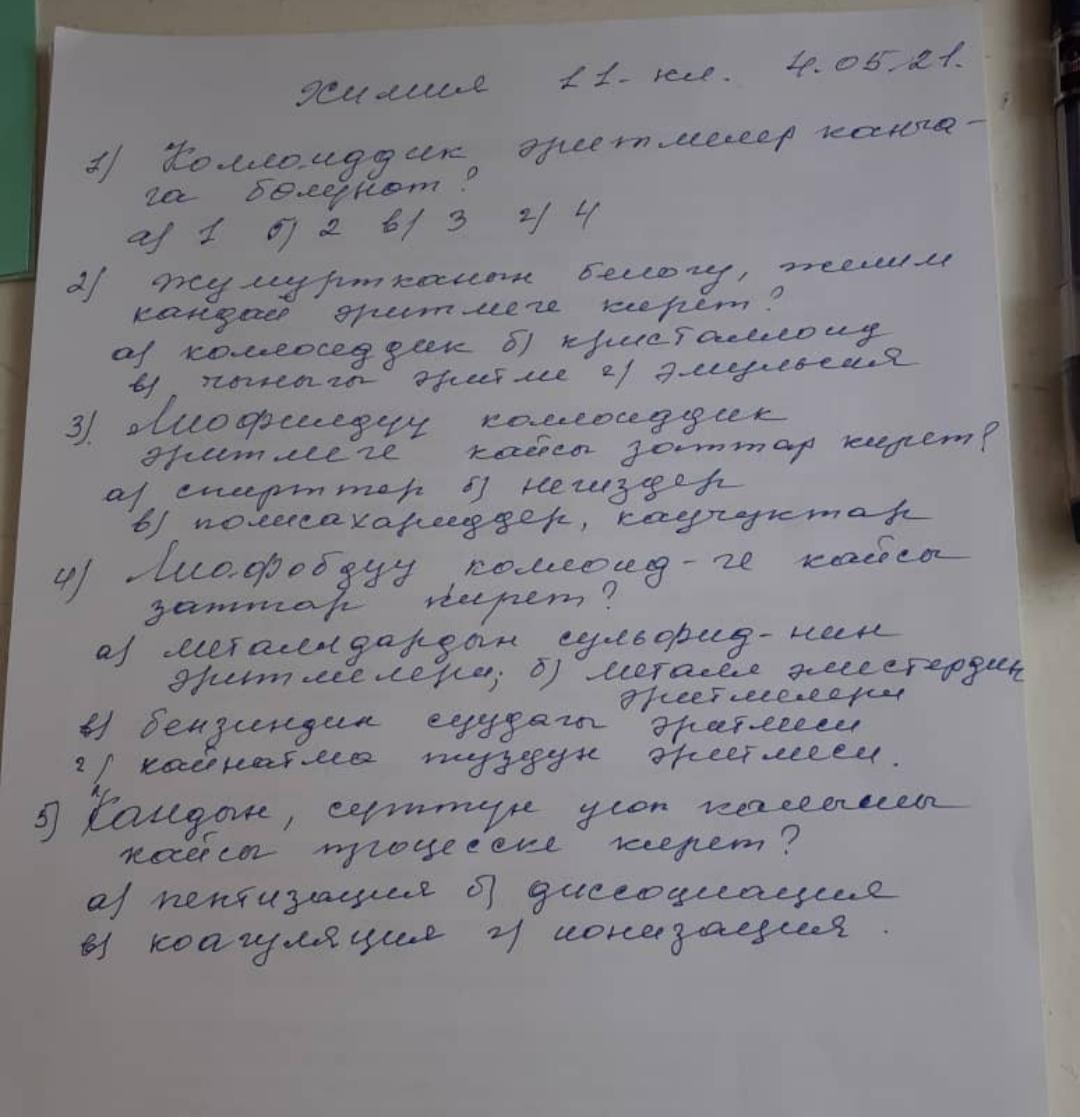 Химия 11-кл. 4.05.21.
1) Коллоиддик эритмелер канча-
га бөлүнөт?
а) 1 б) 2 в) 3 г) 4
2) Жумуртканын белогу, желим
кандай эритмеге кирет?
а) коллоиддик б) кристаллоид
в) чыныгы эритме г) эмульсия
3) Лиофилдүү коллоиддик
эритмеге кайсы заттар кирет?
а) спирттер б) негиздер
в) полисахариддер, каучуктар
4) Лиофобдуу коллоид-ге кайсы
заттар кирет?
а) металлдардын сульфид-нин
эритмелери; б) металл эместердин
эритмелери
в) бензиндин суудагы эритмеси
г) кайнатма туздун эритмеси.
5) Кандын, сүттүн уюп калышы
кайсы процесске кирет?
а) пептизация б) диссоциация
в) коагуляция г) ионизация.